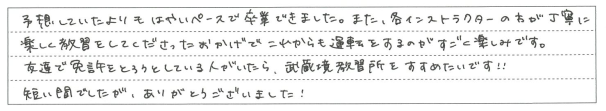 予想していたよりもはやいペースで卒業できました。また、各インストラクターの方が丁寧に
楽しく教習をしてくださったおかげでこれからも運転をするのがすごく楽しみです。
友達で免許をとろうとしている人がいたら、武蔵境教習所をすすめたいです!!
短い間でしたが、ありがとうございました!